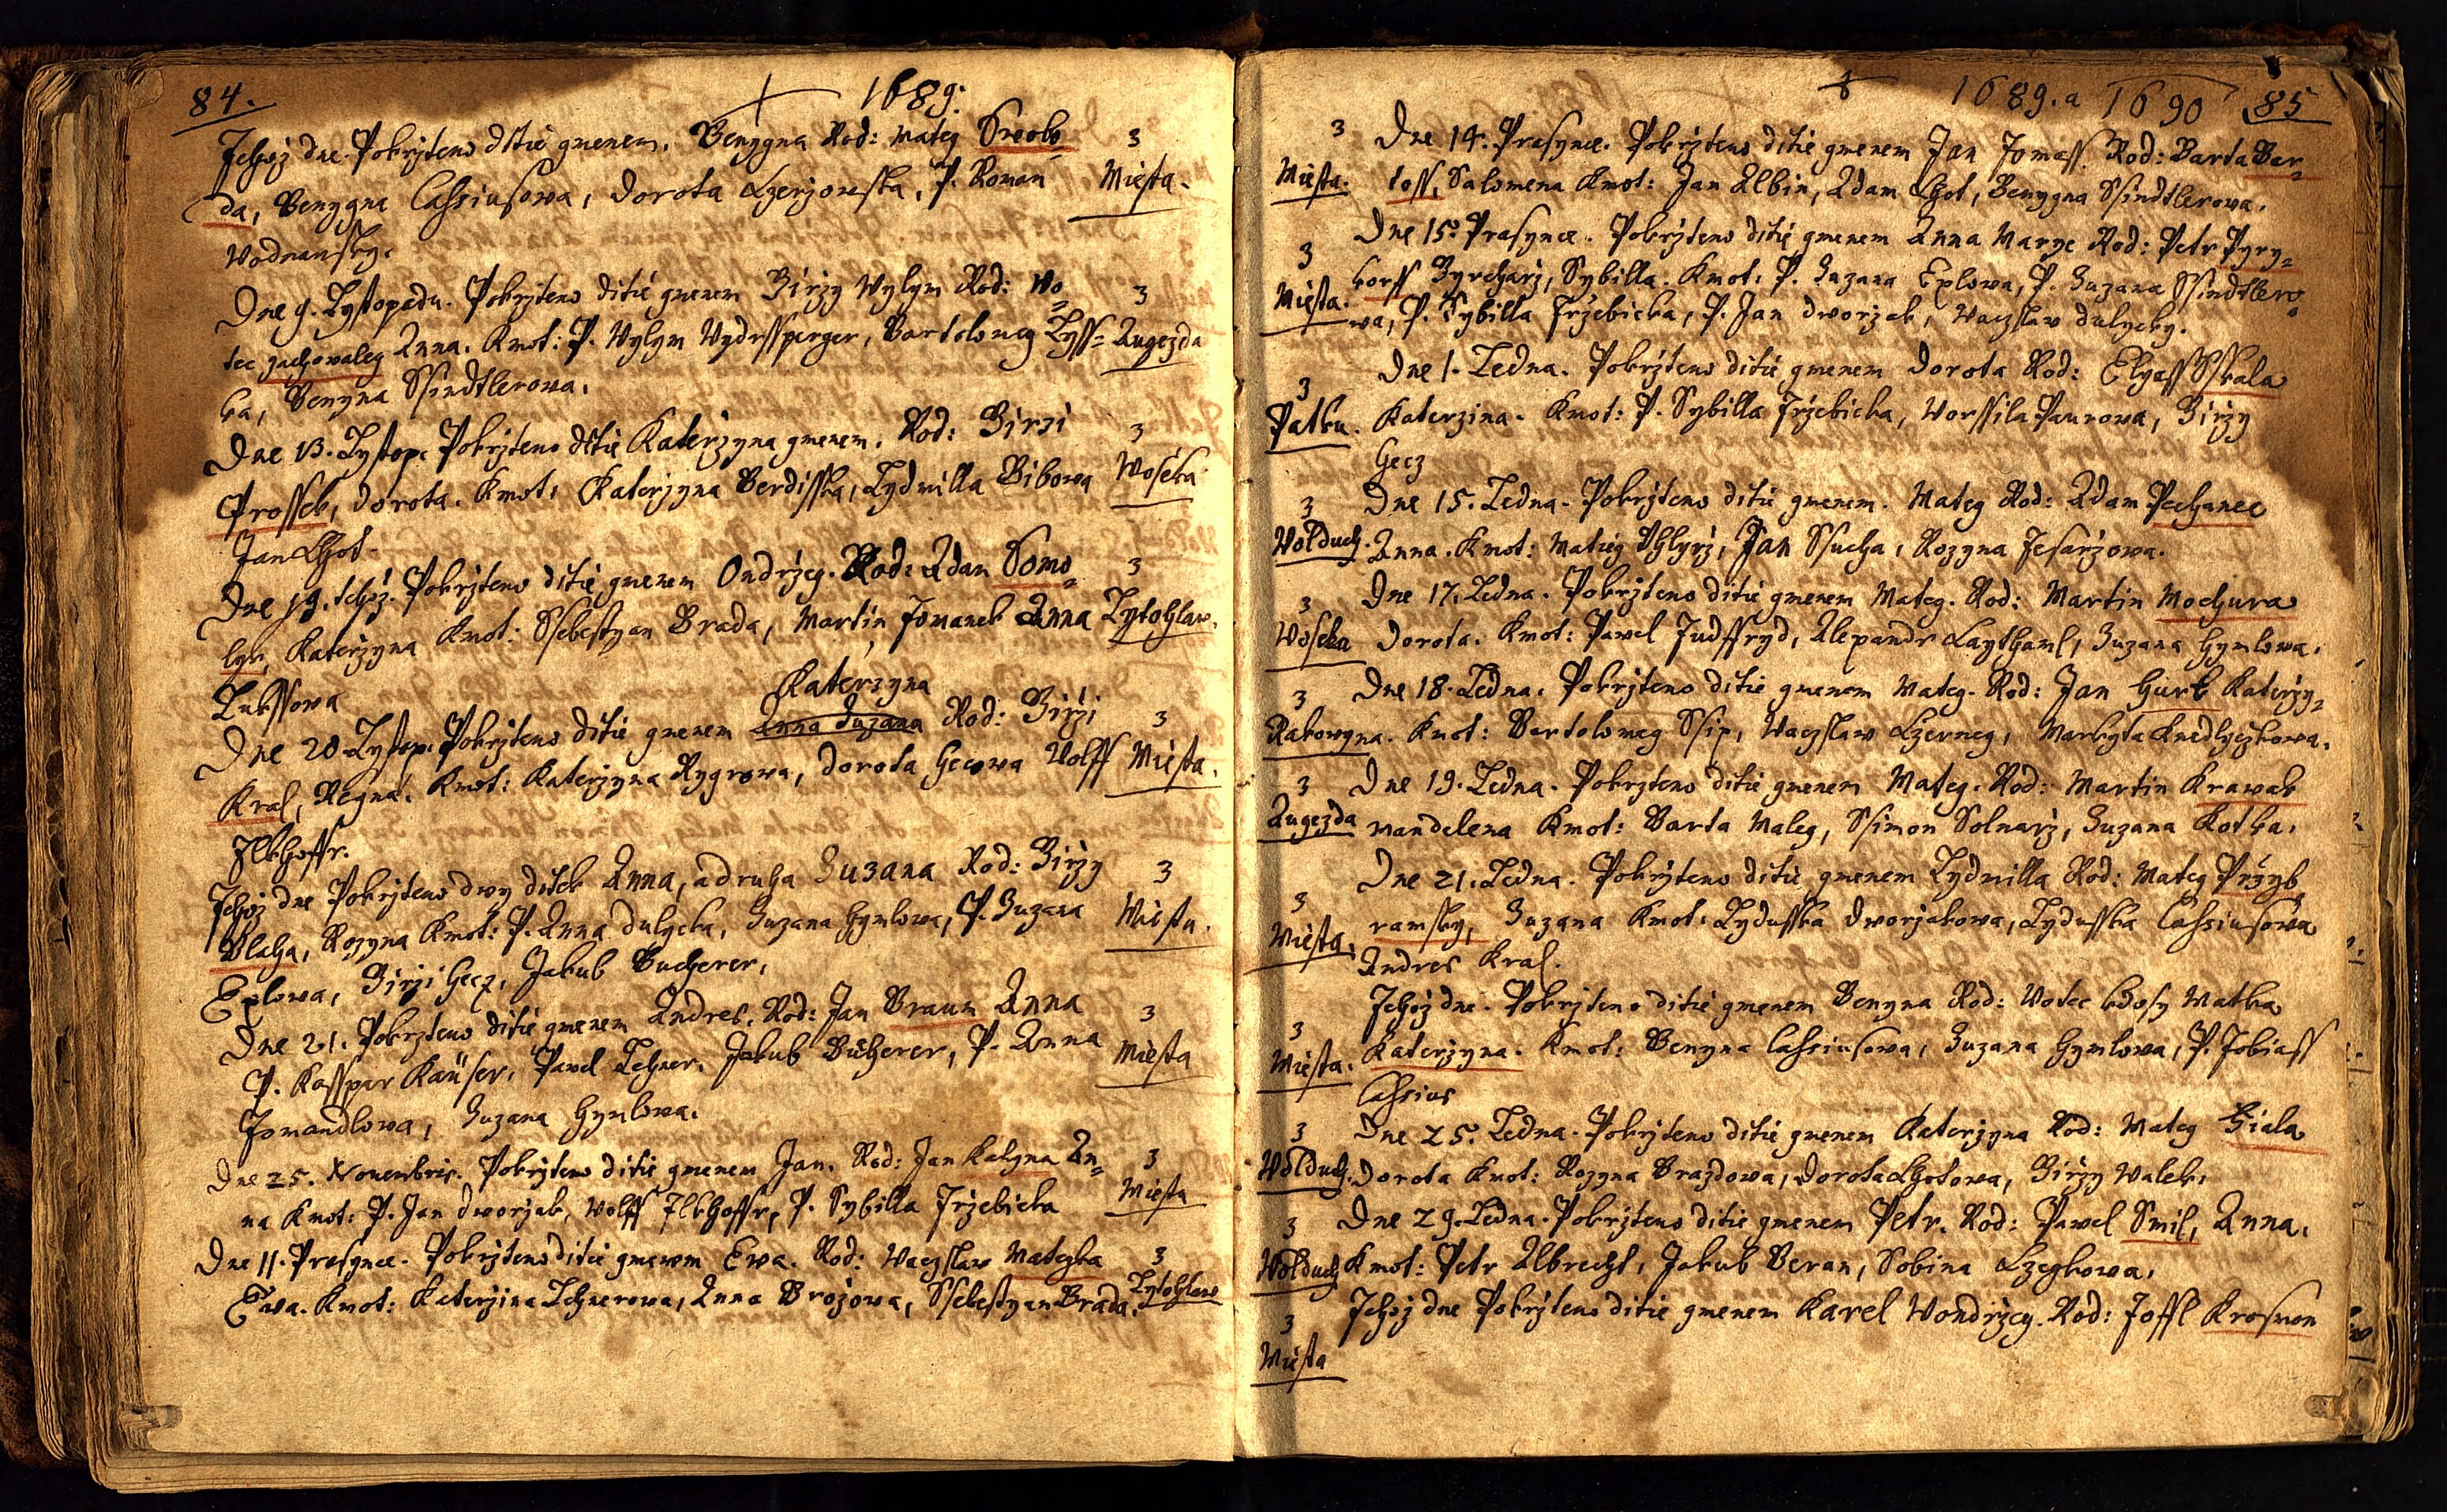 84. 1689.
Tehoż dne Pokrzteno ditie gmenem. Benygna Rod: Mateg Swobo= 3
da, Benygna Cassiusowa, Dorota Czerzowska, P. Roman Miesta.
Wodnansky.
Dne 9. Lystopadu. Pokrzteno ditie gmenem Girzy Wylym Rod: Wo= 3
tec zachowaleg Anna. Kmot: P. Wylym Wydrssperger, Bartolomeg Lyss= Augezda
ka, Benyna Ssindtlerowa.
Dne 13. Lystop. Pokrzteno ditie Katerzyna gmenem. Rod: Girzi 3
Prossek, Dorota. Kmot: Katerzyna Berdisska, Lydmilla Bibowa Woseka
Jan Lhot.
Dne 19. tehoż. Pokrzteno ditie gmenem Ondrzeg. Rod: Adam Somo= 3
lyk, Katerzyna Kmot: Ssebestyan Brada, Martin Tomanek Anna Lytohlaw.
Lukssowa
Katerzyna
Dne 20 Lystop. Pokrzteno ditie gmenem Anna Suzana Rod: Girzi 3
Kral, Regna. Kmot: Katerzyna Rygrowa, Dorota Gecowa Wolff Miesta.
Ilkhoffr.
Tehoż dne Pokrzteno dwy ditek Anna, a druha Zuzana Rod: Girzy 3
Blaha, Rozyna Kmot: P. Anna Dulycka, Zuzana Gymlowa, P. Zuzana Miesta.
Exlowa, Girzi Gecz, Jakub Bucherer,
Dne 21. Pokrzteno ditie gmenem Andres. Rod: Jan Braun Anna 3
P. Kasspar Kaüser, Pawel Lehner. Jakub Bücherer, P. Anna Miesta
Tomandlowa, Zuzana Gymlowa.
Dne 25. Nouembris. Pokrzteno ditie gmenem Jan. Rod: Jan Kalyna An= 3
na Kmot: P. Jan Dworzak, Wolff Ilkhoffr, P. Sybilla Trzebicka Miesta
Dne 11. Prasynce. Pokrzteno ditie gmenem Ewa. Rod: Waczslaw Mateyka 3
Ewa. Kmot: Katerzina Lehnerowa, Anna Brożowa, Ssebestyan Brada. Lytohlaw
1689. a 1690 85
3 Dne 14. Prasynce. Pokrzteno ditie gmenem Jan Tomass. Rod: Barta Bar=
Miesta. toss, Salomena Kmot: Jan Albin, Adam Lhot, Benygna Ssindtlerowa.
3 Dne 15. Prasynce. Pokrzteno ditie gmenem Anna Marye Rod: Petr Pyry=
korss Zyrcharz, Sybilla. Kmot: P. Zuzana Exlowa, P. Zuzana Ssindtlero=
Miesta. wa, P. Sybilla Trzebicka, P. Jan Dworzak, Waczslaw Dulycky.
3 Dne 1. Ledna. Pokrzteno ditie gmenem Dorota Rod: Elyass Sskala
Patku. Katerzina. Kmot: P. Sybilla Trzebicka, Worssila Paurowa, Girzy
Gecz
3 Dne 15. Ledna. Pokrzteno ditie gmenem. Mateg Rod: Adam Pechanec
Wolduch. Anna. Kmot: Matieg Vhlyrz, Jan Ssucha, Rozyna Tesarzowa.
3 Dne 17. Ledna. Pokrzteno ditie gmenem Mateg. Rod: Martin Mochura
Woseka Dorota. Kmot: Pawel Judffryd, Alexandr Laythaml, Zuzana Gymlowa.
3 Dne 18. Ledna. Pokrzteno ditie gmenem Mateg. Rod: Jan Hurk Katerzy=
Rakowyna. Kmot: Bartolomeg Ssip, Waczslaw Czerneg, Markyta Knedlyczkowa.
3 Dne 19. Ledna. Pokrzteno ditie gmenem Mateg. Rod: Martin Krawak
Augezda Mandelena Kmot: Barta Maleg, Ssimon Solnarz, Zuzana Kotka.
3 Dne 21. Ledna. Pokrzteno ditie gmenem Lydmilla Rod: Mateg Przyb=
Miesta. ramsky, Zuzana Kmot: Lydusska Dworzakowa, Lydusska Cassiusowa
Andres Kral.
3 Tehoż dne. Pokrzteno ditie gmenem Benyna Rod: Wotec kdosy Matka
Miesta. Katerzyna. Kmot: Benyna Cassiusowa, Zuzana Gymlowa, P. Tobiass
Cassius
3 Dne 25. Ledna. Pokrzteno ditie gmenem Katerzyna Rod: Mateg Fiala
Wolduch. Dorota Kmot: Rozyna Brazdowa, Dorota Lhotowa, Girzy Walek.
3 Dne 29. Ledna. Pokrzteno ditie gmenem Petr. Rod: Pawel Smil, Anna.
Wolduch Kmot: Petr Albrecht, Jakub Beran, Sobina Czegkowa.
3 Tehoż dne Pokrzteno ditie gmenem Karel Wondrzeg. Rod: Joffl Krosmon
Miesta